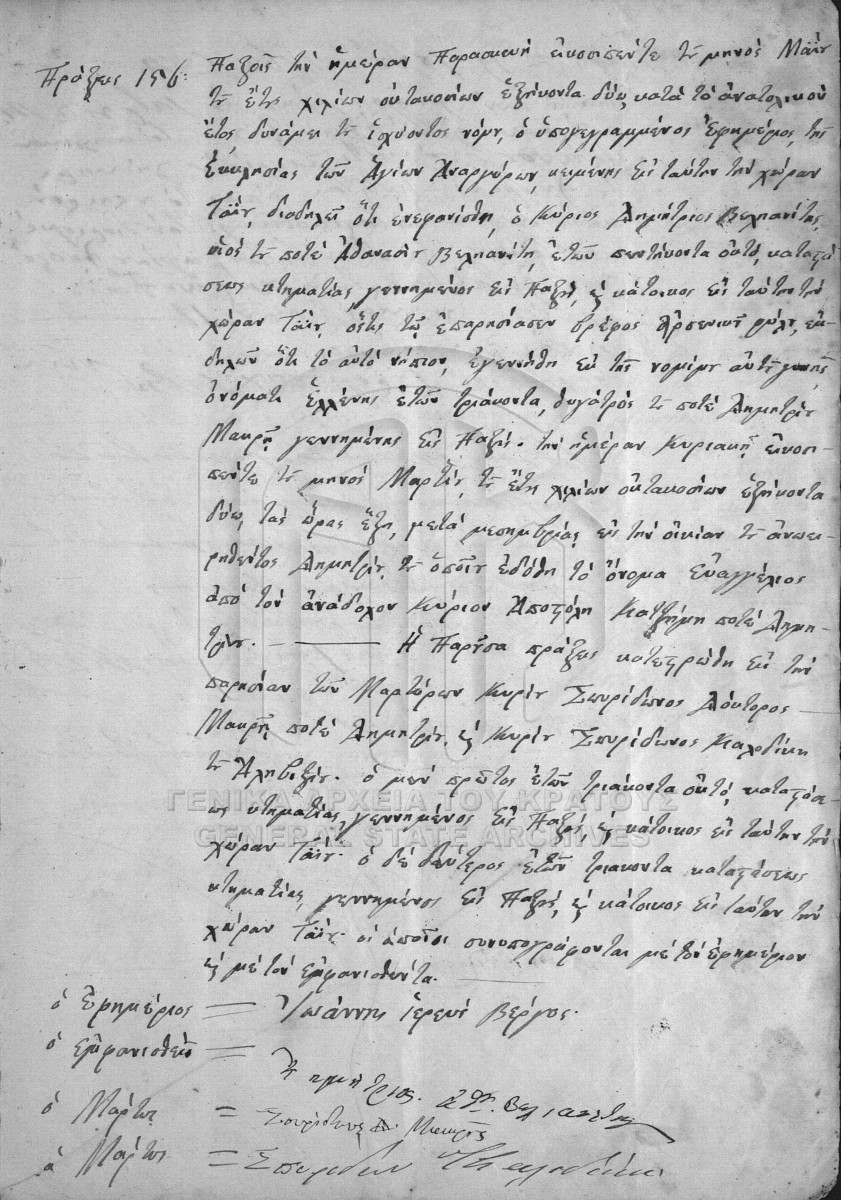 Πράξεις 156:
Παξοῖς τὴν ἡμέραν Παρασκευὴ εἰκοσιπέντε τȣ μηνὸς Μαΐȣ
τȣ ἔτȣς χιλίων ὀκτακοσίων ἑξήκοντα δύω, κατὰ τὸ ἀνατολικὸν
ἔτος δυνάμει τȣ ἰσχύοντος νόμȣ, ὁ ὑπογεγραμμένος Ἐφημέριος, τῆς
Ἐκκλησίας τῶν Ἁγίων Ἀναργύρων, κειμένης εἰς ταύτην τὴν χώραν
Γάϊȣ, διαδηλεῖ ὅτι ἐνεφανίσθη, ὁ Κύριος Δημήτριος Βελιανίτης,
υἱὸς τȣ ποτὲ Ἀθανασίȣ Βελιανίτη, ἐτῶν πεντήκοντα ὀκτὼ, καταστά-
σεως κτηματίας, γεννημένος εἰς Παξȣς, ϗ κάτοικος εἰς ταύτην τὴν
χώραν Γάϊȣ, ὅστις τῷ ἐπαρησίασεν βρέφος ἀρσενικȣ φύλȣ, ἐκ-
δηλῶν ὅτι τὸ αὐτὸ νήπιον, ἐγεννήθη ἐκ τῆς νομίμȣ αὐτȣ γυνῆς,
ὀνόματι Ἑλλένης ἐτῶν τριάκοντα, θυγατρὸς τȣ ποτὲ Δημητρίȣ
Μακρῆ γεννημένης εἰς Παξȣς. τὴν ἡμέραν Κυριακῆ εἰκοσι-
πέντε τȣ μηνὸς Μαρτίȣ, τȣ ἔτȣς χιλίων ὀκτακοσίων ἑξήκοντα
δύω, τὰς ὥρας ἕξη, μετὰ μεσημβρίας εἰς τὴν οἰκίαν τȣ ἄνωει-
ρηθέντος Δημητρίȣ, τȣ ὁποίȣ ἐδόθη τὸ ὄνομα Εὐαγγέλιος
ἀπὸ τὸν ἀνάδοχον Κύριον Ἀποστόλη Κατζήμη ποτὲ Δημη-
τρίȣ. Ἡ Παρȣσα πράξις κατεστρώθη εἰς τὴν
παρησίαν τῶν Μαρτύρων Κυρίȣ Σπυρίδωνος Δόκτορος
Μακρῆ ποτὲ Δημητρίȣ, ϗ Κυρίȣ Σπυρίδωνος Καλοδίκη
τȣ Ἀληβιζίȣ. ὁ μὲν πρῶτος ἐτῶν τριάκοντα ὀκτὼ, καταστάσε-
ως κτηματίας, γεννημένος εἰς Παξȣς, ϗ κάτοικος εἰς ταύτην τὴν
χώραν Γάϊȣ. ὁ δὲ δεύτερος ἐτῶν τριακοντα καταστάσεως
κτηματίας, γεννημένος εἰς Παξȣς, ϗ κάτοικος εἰς ταύτην τὴν
χώραν Γάϊȣ. οἱ ὁποῖοι συνυπογράφονται μὲ τὸν ἐφημέριον
ϗ μὲ τὸν ἐμφανισθέντα.
ὁ Ἐφημέριος = Ἰωάννης ἱερεὺς Βέργος.
ὁ ἐμφανισθεὶς = Δημήτριος. Ἀθ. Βελιανίτης
ὁ Μάρτυς = Σπυρίδων Μακρῆς
ὁ Μάρτυς = Σπυρίδων Καλοδίκης
ΓΕΝΙΚΑ ΑΡΧΕΙΑ ΤΟΥ ΚΡΑΤΟΥΣ
GENERAL STATE ARCHIVES